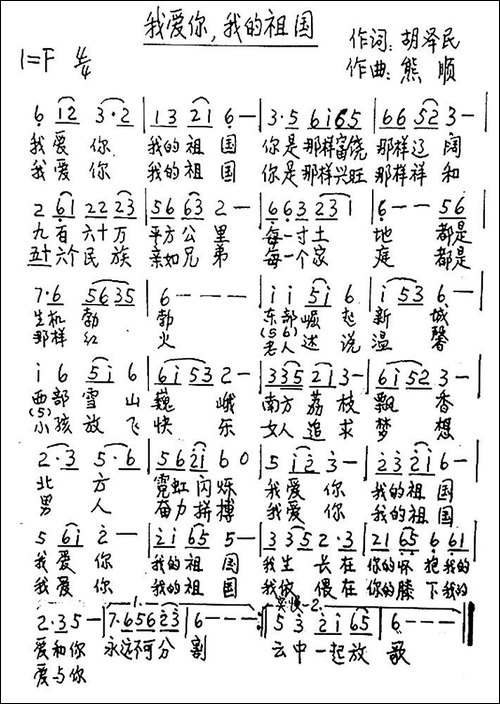 我爱你,我的祖国
作词:胡泽民
1=F 4/4 作曲:熊 顺
6 12 3·2 | 13 21 6— | 3·5 6i65 | 66 52 3— |
我爱 你 我的祖 国 你是那样富饶 那样辽 阔
我爱 你 我的祖 国 你是那样兴旺 那样祥 和
2 61 22 23 | 56 63 2— | 663 231 | 6·—— 56 |
九百六十万 平方公 里 每一寸土 地 都是
五十六个民族 亲如兄 弟 每一个家 庭 都是
7·6 5635 | 6——— | i i 5i 6 | i 53 6— |
生机 勃 勃 东部崛 起 新 城
那样 红 火 (5 6)老人述 说 温 馨
i 6 5i 6 | 6i 53 2— | 335 21 3— | 6i 52 3— |
西部雪 山 巍 峨 南方荔枝 飘 香
(5)小孩放 飞 快 乐 女人追求 梦 想
2·3 5·6 | 56 21 6 0 | 5 i2 3— | 23 21 6— |
北 方 霓虹闪烁 我爱 你 我的祖 国
男 人 奋力拼搏 我爱 你 我的祖 国
5 6i 2— | 2i 65 5— | 3 35 2·3 | 21 65 6 61 |
我爱 你 我的祖 国 我生 长在 你的怀 抱我的
我爱 你 我的祖 国 我 偎在 你的膝 下我的
2·35— | 1. 7·656 23 | 6——— :| 2. 5 3 2i 65 | 6——— ‖
爱和你 永远不可分 割 云中一起放 歌
爱与你